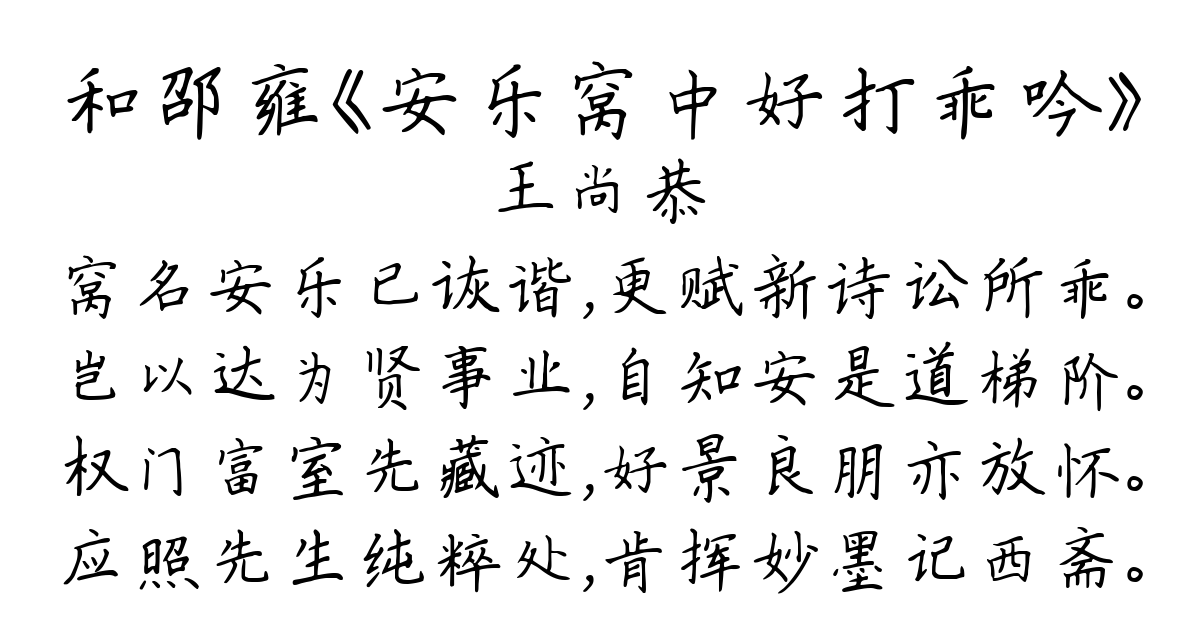 和邵雍《安乐窝中好打乖吟》
王尚恭
窝名安乐已诙谐,更赋新诗讼所乖。
岂以达为贤事业,自知安是道梯阶。
权门富室先藏迹,好景良朋亦放怀。
应照先生纯粹处,肯挥妙墨记西斋。